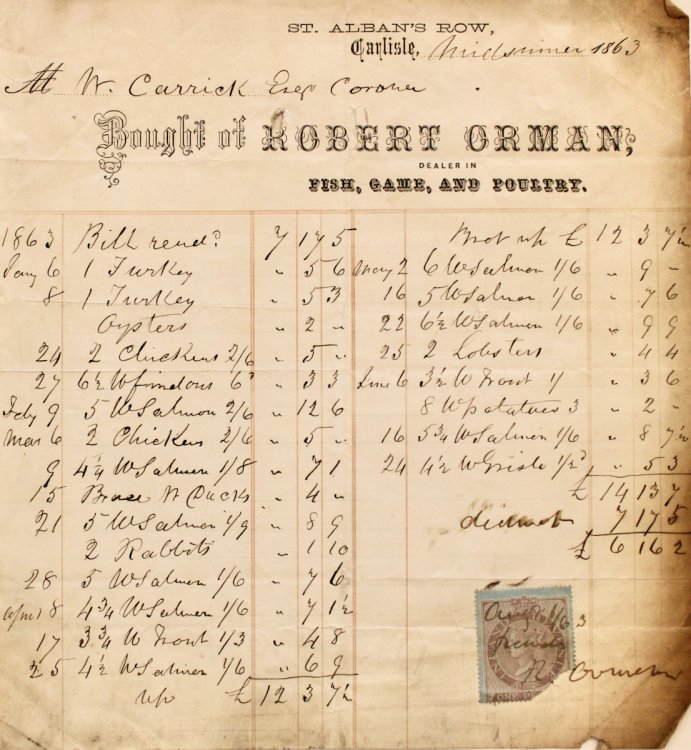 ST. ALBAN'S ROW,
Carlisle, Midsummer 1863
W. Carrick Esqr Coroner
Bought of ROBERT ORMAN,
DEALER IN
FISH, GAME, AND POULTRY.
1863 Bill rend.d 7 17 5
Jany 6 1 Turkey " 5 6
8 1 Turkey " 5 3
Oysters " 2 "
24 2 Chickens 2/6 " 5 "
27 6½ W findons 6d " 3 3
Feby 9 5 W Salmon 2/6 " 12 6
Mar 6 2 Chickens 2/6 " 5 "
9 4¼ W Salmon 1/8 " 7 1
15 Brace W Ducks " 4 "
21 5 W Salmon 1/9 " 8 9
2 Rabbits " 1 10
28 5 W Salmon 1/6 " 7 6
April 8 4¾ W Salmon 1/6 " 7 1½
17 3¾ W Trout 1/3 " 4 8
25 4½ W Salmon 1/6 " 6 9
up £ 12 3 7½
Brot up £ 12 3 7½
May 2 6 W Salmon 1/6 " 9 "
16 5 W Salmon 1/6 " 7 6
22 6½ W Salmon 1/6 " 9 9
25 2 Lobsters " 4 4
June 6 3½ W Trout 1/ " 3 6
8 W potatoes 3 " 2 "
16 5¾ W Salmon 1/6 " 8 7½
24 4½ W Grisle 1/2d " 5 3
£ 14 13 7
deduct 7 17 5
£ 6 16 2
Augt 1/63
R Orman
ONE PENNY